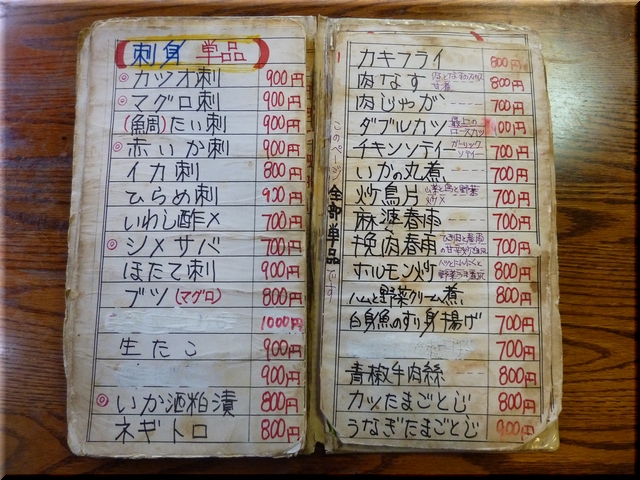 刺身 単品
◎カツオ刺 900円
◎マグロ刺 900円
(魚周)たい刺 900円
◎赤いか刺 900円
イカ刺 800円
ひらめ刺 900円
いわし酢〆 700円
◎シメサバ 700円
ほたて刺 900円
ブツ(マグロ) 800円
1000円
生たこ 900円
900円
◎いか酒粕漬 800円
ネギトロ 800円
このページ全部単品です
カキフライ 800円
肉なす 800円
肉じゃが 700円
ダブルカツ 最上のロースカツ 00円
チキンソテイー ガーリックソテイー 700円
いかの丸煮 700円
炒鳥片 700円
麻婆春雨 700円
挽肉春雨 700円
ホルモン炒 800円
ハムと野菜クリーム煮 800円
白身魚のすり身揚げ 700円
700円
青椒牛肉絲 800円
カツたまごとじ 800円
うなぎたまごとじ 900円